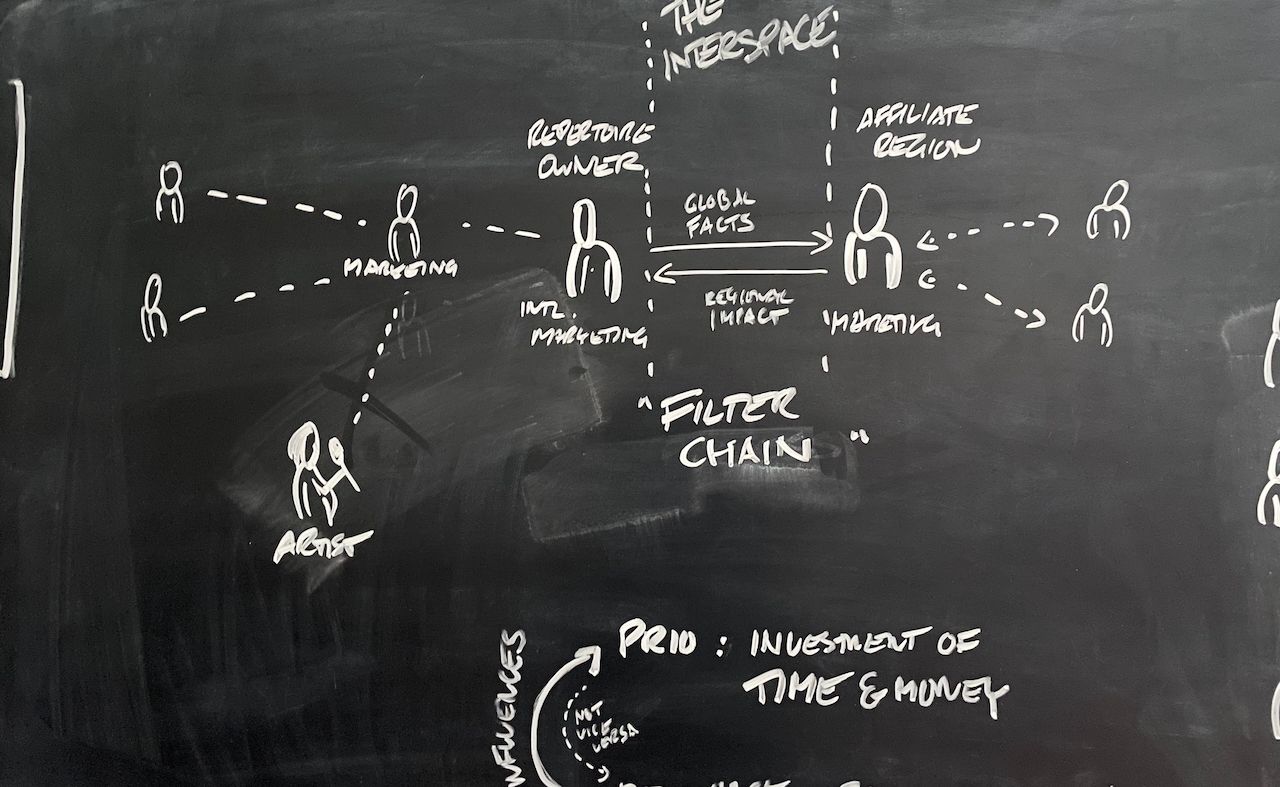 THE
INTERSPACE
REPERTOIRE
OWNER
AFFILIATE
REGION
GLOBAL
FACTS
MARKETING
INTL.
MARKETING
REGIONAL
IMPACT
MARKETING
"FILTER
CHAIN"
ARTIST
PRIO : INVESTMENT OF
TIME & MONEY
NOT
VICE
VERSA